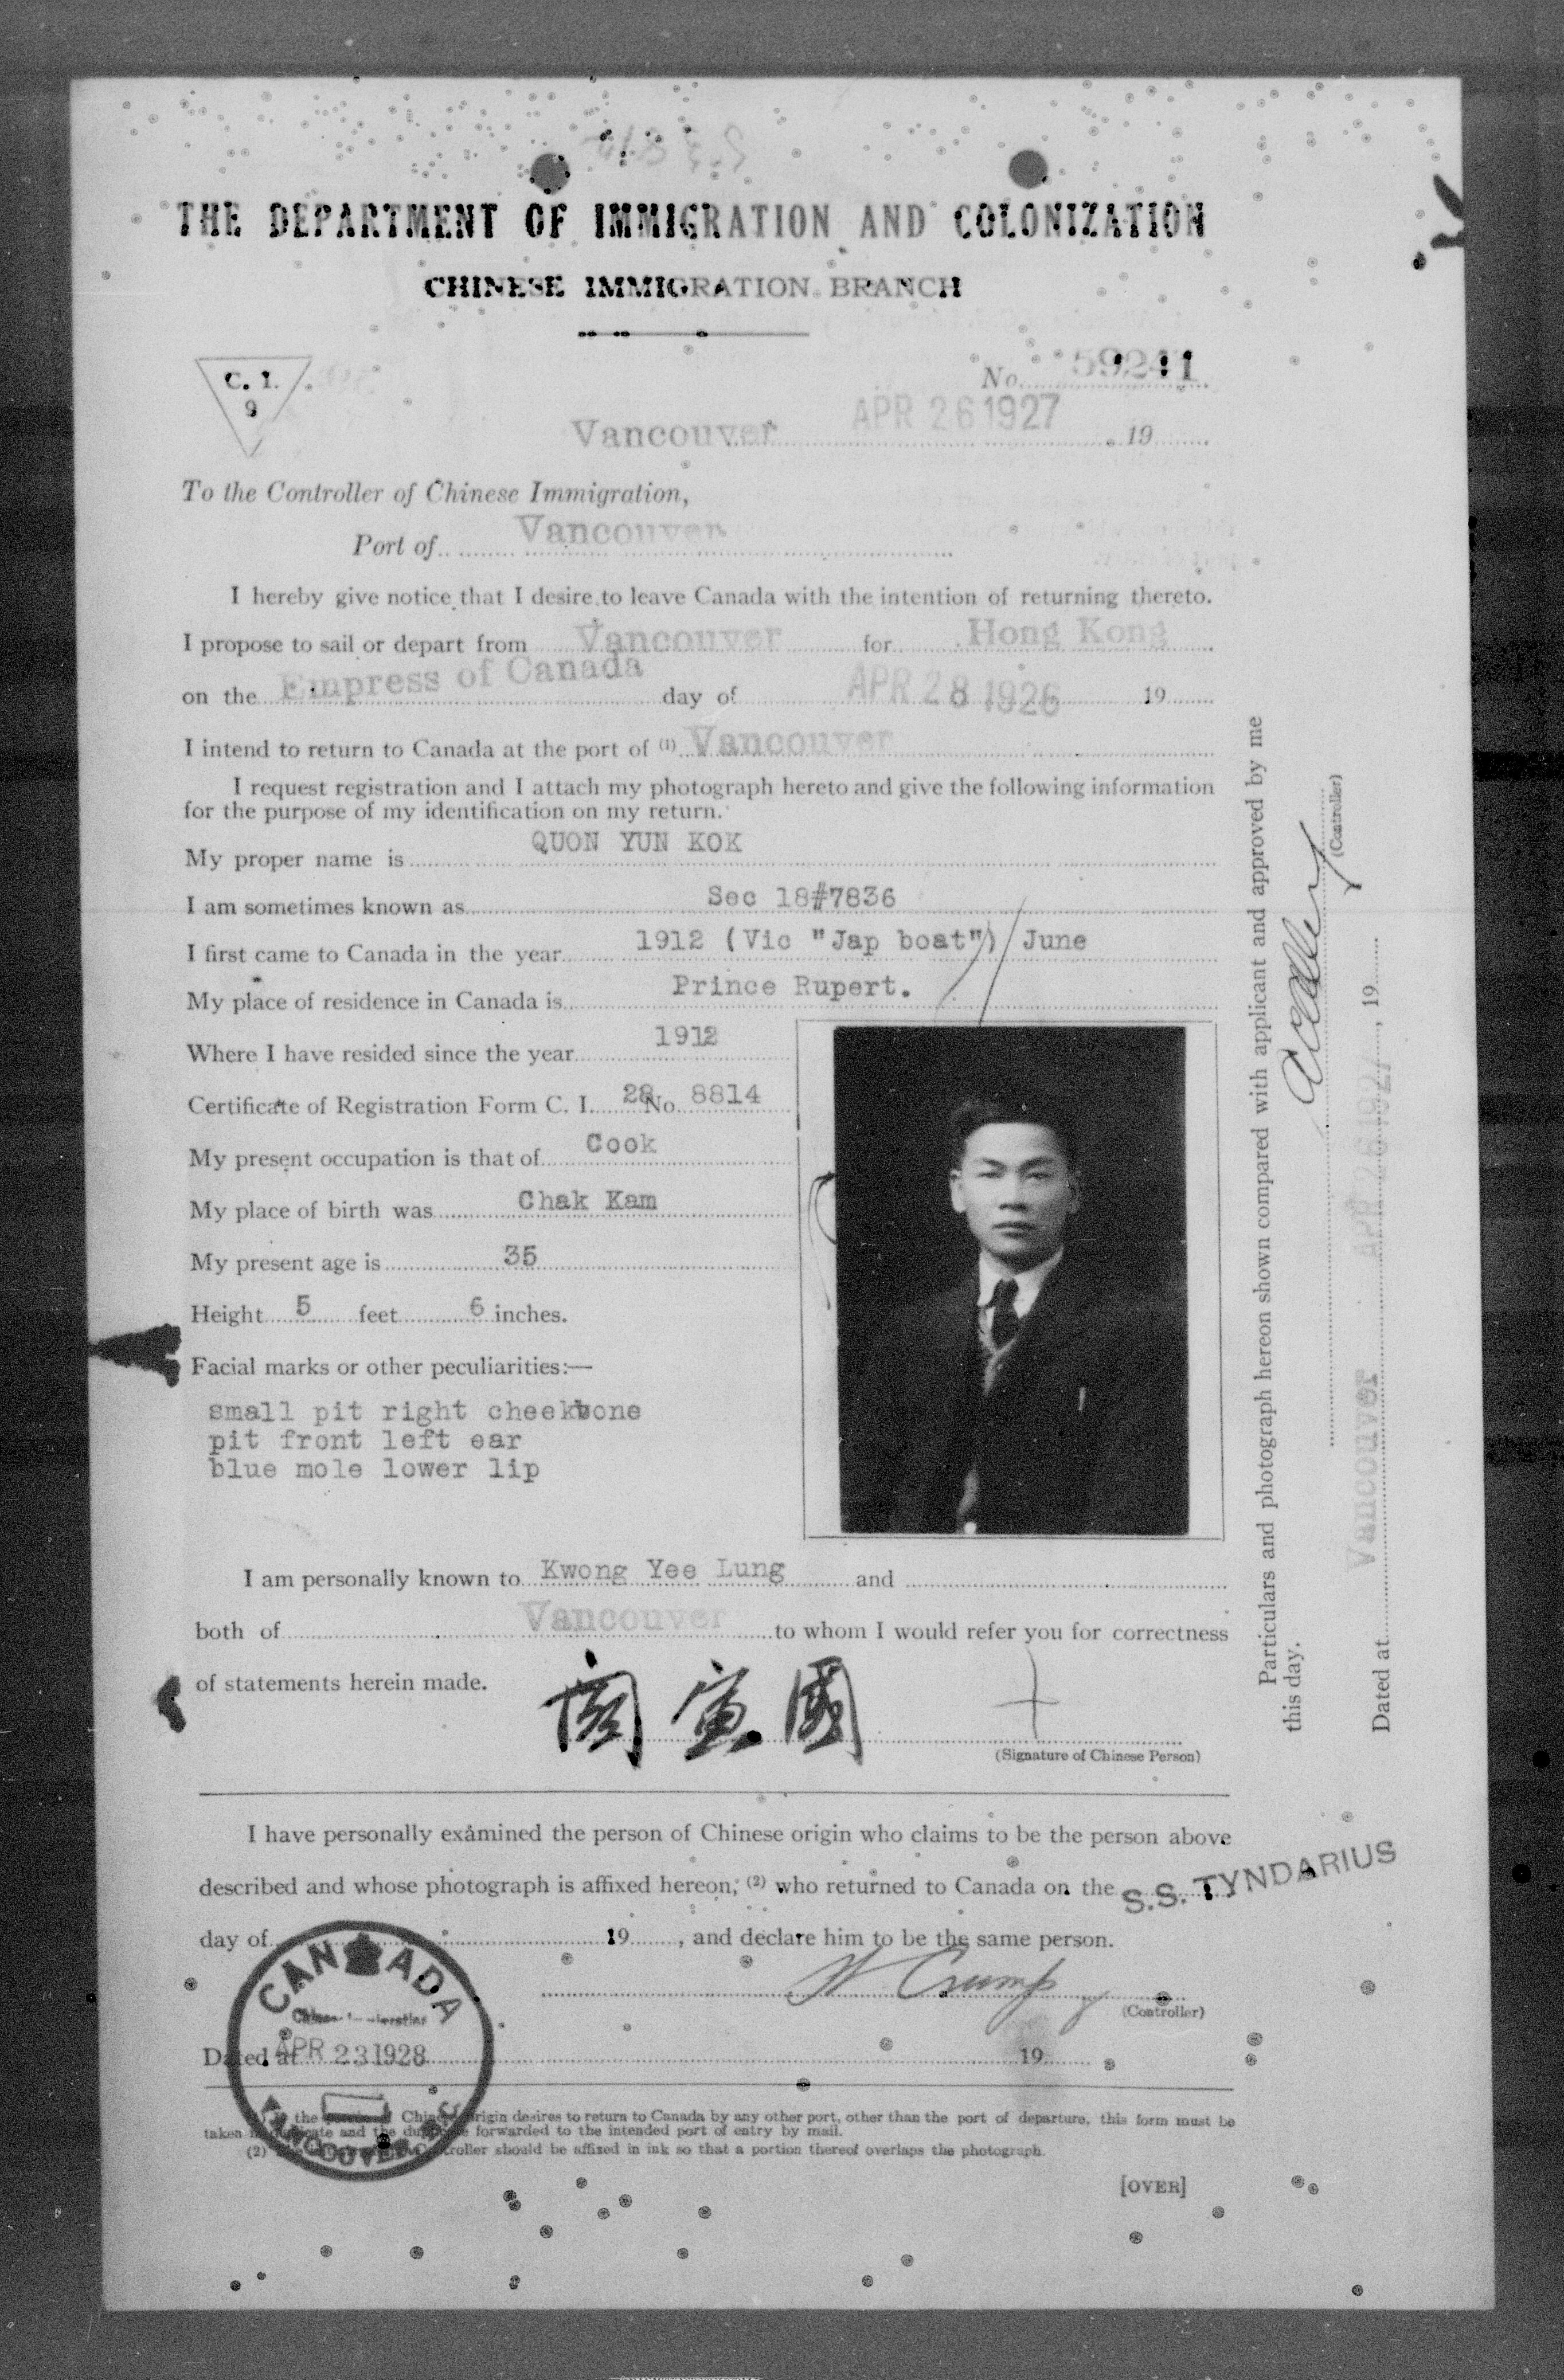 THE DEPARTMENT OF IMMIGRATION AND COLONIZATION
CHINESE IMMIGRATION BRANCH
C. I.
9
No. 59241
Vancouver APR 26 1927 19
To the Controller of Chinese Immigration,
Port of Vancouver
I hereby give notice that I desire to leave Canada with the intention of returning thereto.
I propose to sail or depart from Vancouver for Hong Kong
on the Empress of Canada day of APR 28 1926 19
I intend to return to Canada at the port of (1) Vancouver
I request registration and I attach my photograph hereto and give the following information
for the purpose of my identification on my return.
My proper name is QUON YUN KOK
I am sometimes known as Sec 18#7836
I first came to Canada in the year 1912 (Vic "Jap boat") June
My place of residence in Canada is Prince Rupert.
Where I have resided since the year 1912
Certificate of Registration Form C. I. 28 No. 8814
My present occupation is that of Cook
My place of birth was Chak Kam
My present age is 35
Height 5 feet 6 inches.
Facial marks or other peculiarities:—
small pit right cheekbone
pit front left ear
blue mole lower lip
I am personally known to Kwong Yee Lung and
both of Vancouver to whom I would refer you for correctness
of statements herein made.
寅國
(Signature of Chinese Person)
I have personally examined the person of Chinese origin who claims to be the person above
described and whose photograph is affixed hereon, (2) who returned to Canada on the S.S. TYNDARIUS
day of 19 , and declare him to be the same person.
W Crump
(Controller)
Dated at 19
CANADA
Chinese Immigration
APR 23 1928
VANCOUVER B.C.
the Chinese origin desires to return to Canada by any other port, other than the port of departure, this form must be
taken in duplicate and the duplicate forwarded to the intended port of entry by mail.
(2) Controller should be affixed in ink so that a portion thereof overlaps the photograph.
[OVER]
Particulars and photograph hereon shown compared with applicant and approved by me
this day.
(Controller)
Dated at Vancouver APR 26 1927, 19